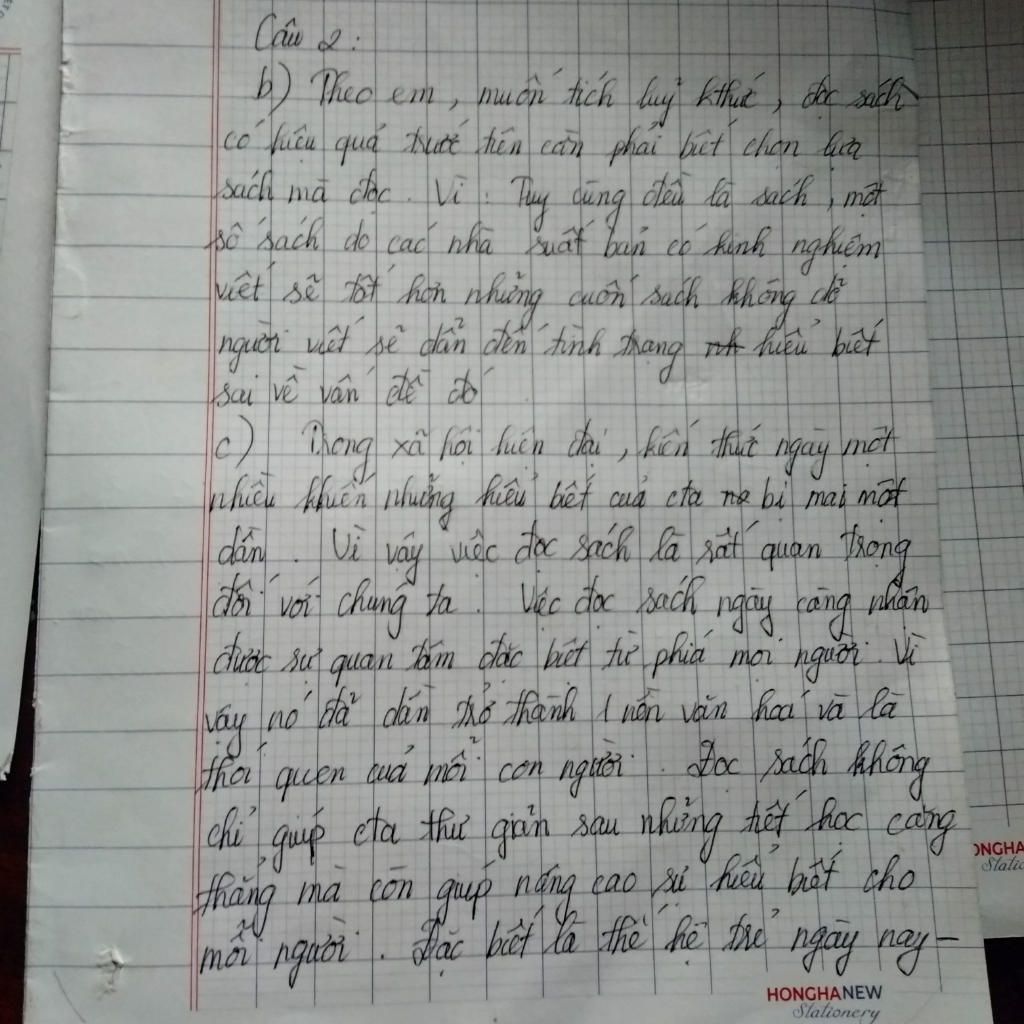 Câu 2:
b) Theo em, muốn tích luỹ kthức, đọc sách
có hiệu quả trước tiên cần phải biết chọn lựa
sách mà đọc. Vì: Tuy cũng đều là sách, một
số sách do các nhà suất bản có kinh nghiệm
viết sẽ tốt hơn những cuốn sách không
người viết sẽ dẫn đến tình trạng hiểu biết
sai về vấn đề đó
c) Trong xã hội hiện đại, kiến thức ngày một
nhiều khiến những hiểu biết của cta bị mai một
dần. Vì vậy việc đọc sách là rất quan trọng
đối với chúng ta. Việc đọc sách ngày càng nhận
được sự quan tâm đặc biệt từ phía mọi người. Vì
vậy nó đã dần trở thành 1 nền văn hoá và là
thói quen của mỗi con người. Đọc sách không
chỉ giúp cta thư giản sau những tiết học căng
thẳng mà còn giúp nâng cao sự hiểu biết cho
mỗi người. Đặc biệt là thế hệ trẻ ngày nay-
HONGHANEW
Stationery
ONGHA
Static